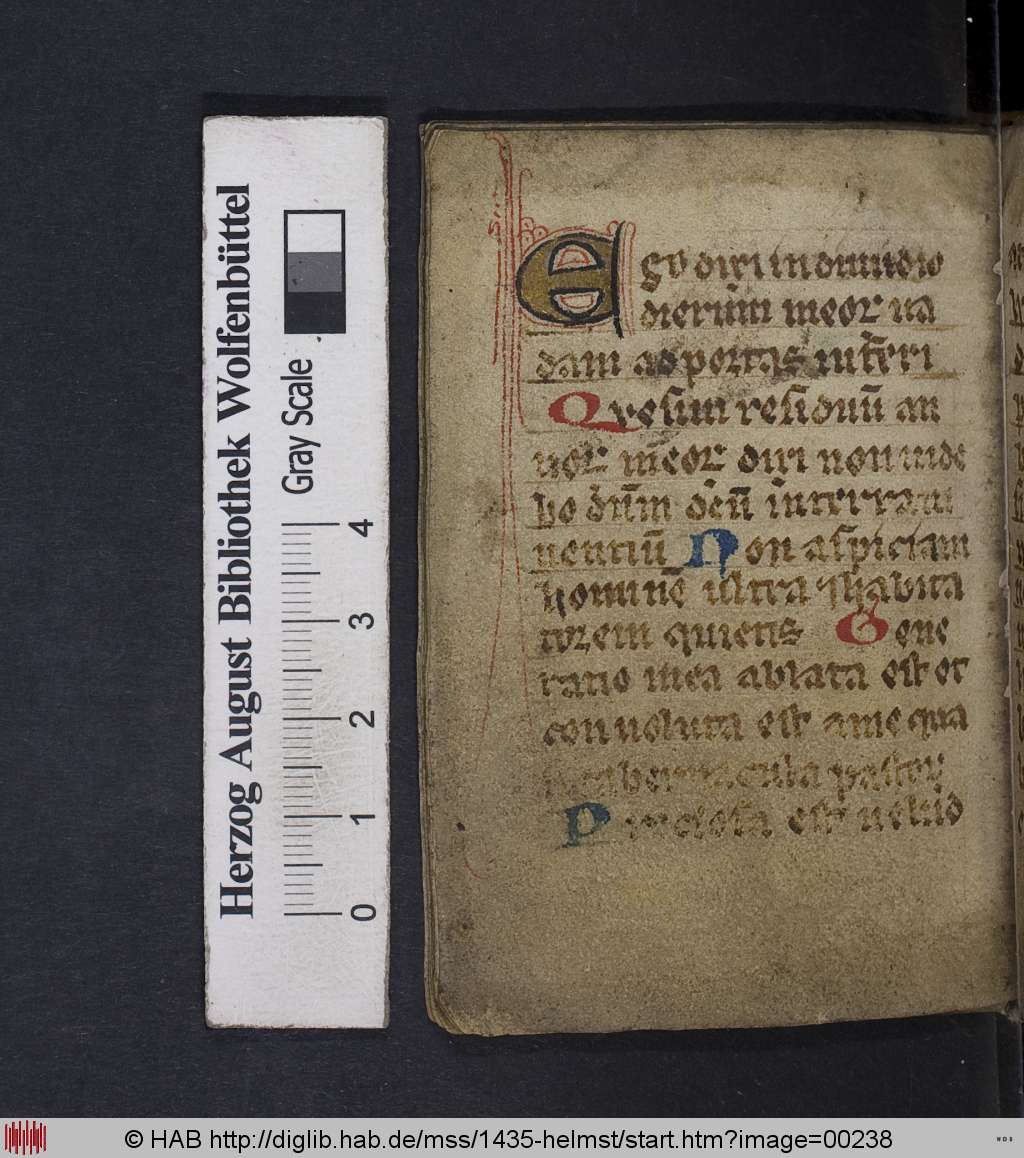 Herzog August Bibliothek Wolfenbüttel
Gray Scale
0 1 2 3 4
Ego dixi in dimidio
dierum meoꝝ ua
dam ad portas inferi
Quesiui residuū an
noꝝ meoꝝ dixi non uide
bo dn̄m deū in terram
uentiū Non aspiciam
hominē ultra ⁊ habita
torem quietis Gene
ratio mea ablata est et
conuoluta est a me qua
si tabernacula pastoꝝ
Precisa est uelud
© HAB http://diglib.hab.de/mss/1435-helmst/start.htm?image=00238